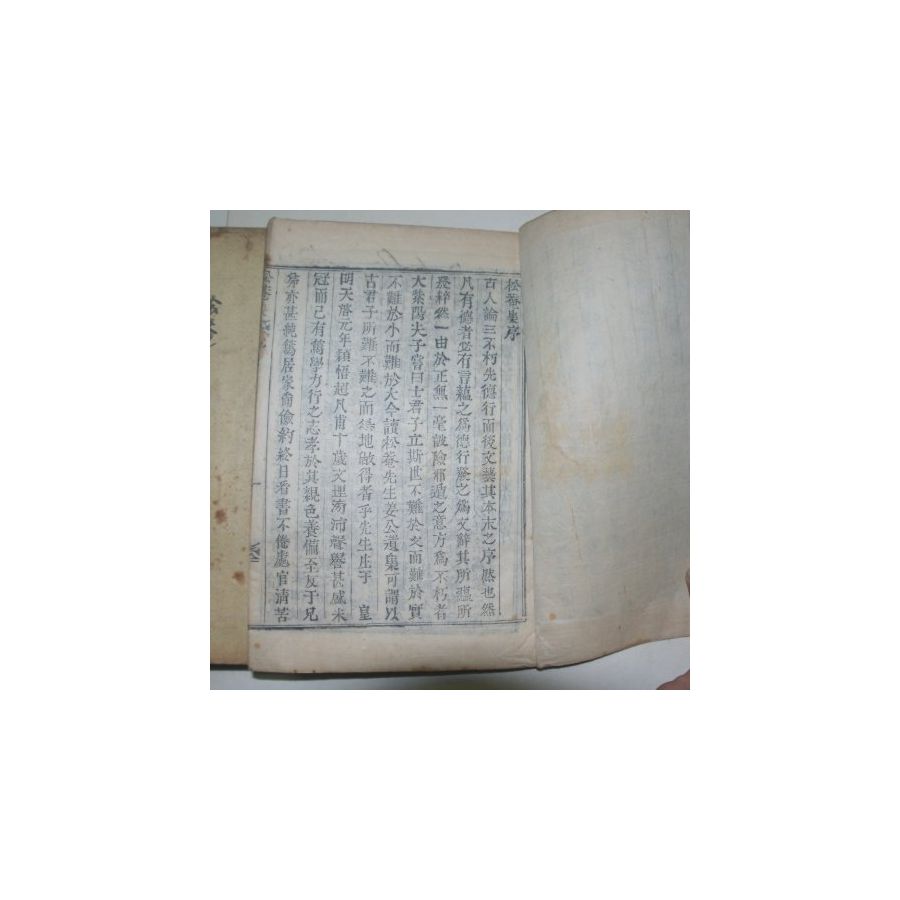 松菴集序
古人論三不朽先德行而後文藝其本末之序然也然
凡有德者必有言蘊之爲德行發之爲文辭其所蘊所
發粹然一由於正無一毫詖險邪遁之意方爲不朽者
大紫陽夫子嘗曰士君子立斯世不難於文而難於實
不難於小而難於大今讀松菴先生姜公遺集可謂以
古君子所難不難之而得地做得者乎先生生于 皇
明天啓元年穎悟超凡甫十歲文理沛聲譽甚盛未
冠而已有篤學力行之志孝於其親色養備至友于兄
弟亦甚純篤居家儉約終日看書不倦處官清苦